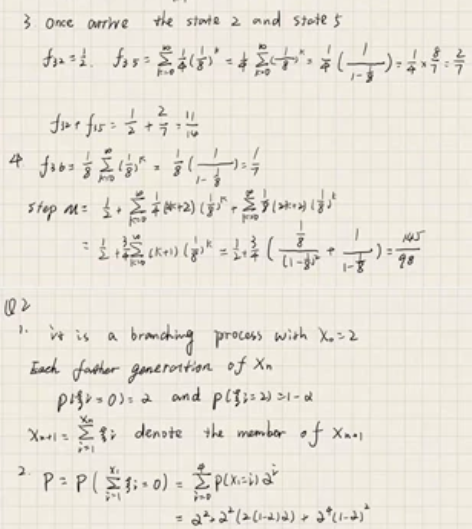 3 Once arrive the state 2 and state 5
f₃₂=½. f₃₅=∑_{k=0}^{∞} ¼(⅛)^k = ¼ ∑_{k=0}^{∞}(⅛)^k = ¼ (1/(1-⅛)) = ¼ × 8/7 = 2/7
f₃₂+f₃₅ = ½ + 2/7 = 11/14
4. f₃₆ = ⅛ ∑_{k=0}^{∞} (⅛)^k = ⅛ (1/(1-⅛)) = 1/7
Step M = ½ + ∑_{k=0}^{∞} ¼ (2k+2) (⅛)^k + ∑_{k=0}^{∞} ⅛ (2k+2) (⅛)^k
= ½ + ¾ ∑_{k=0}^{∞} (k+1) (⅛)^k = ½ + ¾ ( ⅛/(1-⅛)² + 1/(1-⅛) ) = 145/98
Q2
1. it is a branching process with X₀=2
Each father generation of Xn
P(ξi=0)=2 and P(ξi=2)=1-2
X_{n+1} = ∑_{i=1}^{Xn} ξi denote the member of X_{n+1}
2. P = P( ∑_{i=1}^{X₁} ξi=0) = ∑_{i=0}^{4} P(X₁=i) 2^i
= 2²+2²(2(1-2)2) + 2⁴(1-2)²